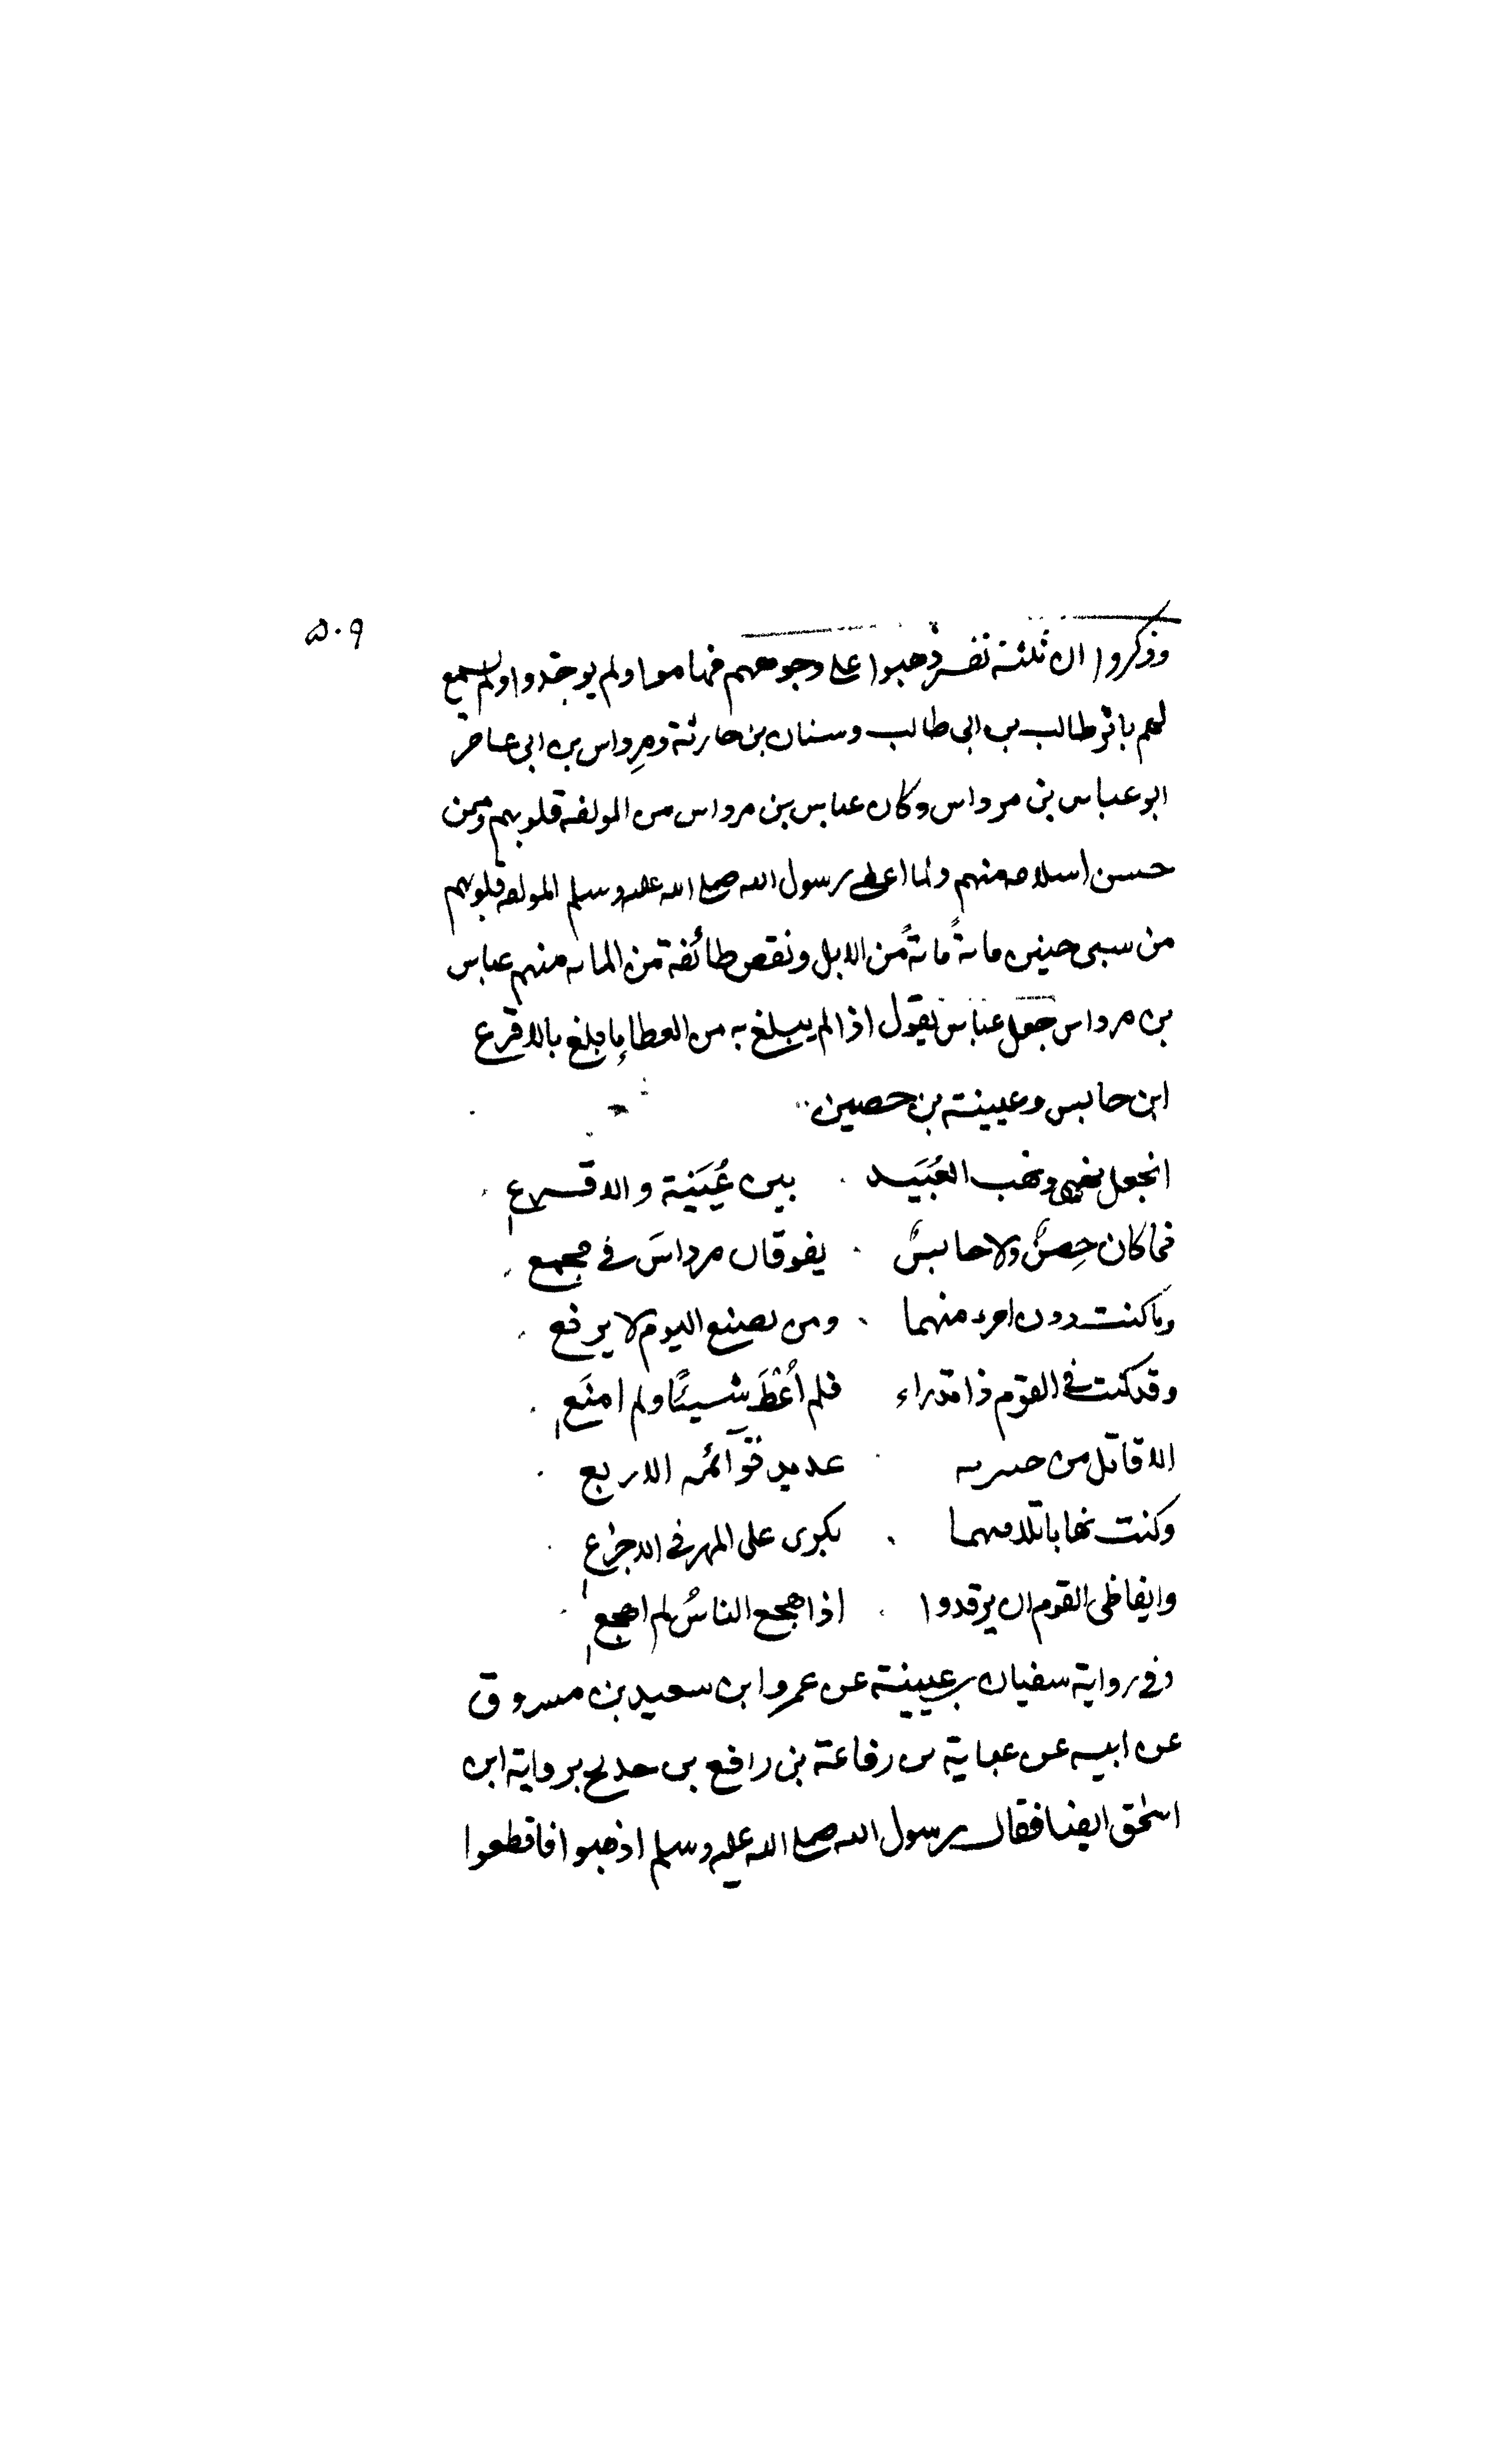 ۵۰۹
وذكروا ان ثلثة نفر ذهبوا على وجوههم فهاموا ولم يوجدوا ولم يسمع
لهم باثر طالب بن ابى طالب وسنان بن حارثة ومرداس بن ابى عامر
ابو عباس بن مرداس وكان عباس بن مرداس من المولفة قلوبهم وممن
حسن اسلامه منهم ولما اعطى رسول الله صلى الله عليه وسلم المولفة قلوبهم
من سبى حنين مائةً مائةً من الابل ونقص طائفة من المائه منهم عباس
بن مرداس جعل عباس يقول اذا لم يبلغ به من العطاء ما بلغ بالاقرع
ابن حابس وعيينة بن حصين
اتجعل نهبى ونهب العُبَيَد بين عُيَيَنة والاقرع
فما كان حِصنٌ ولا حابسٌ يفوقان مرداسَ في مجمع
وما كنت دون امرء منهما ومن تضع اليوم لا يرفع
وقد كنت في القوم ذا تدراء فلم اُعْطَ شيئًا ولم امنَع
الا افائل من حربه عديد قوآئمه الاربع
وكنت نهابا تلافيهما بكرى على المهر في الاجرع
وايقاظى القوم ان يرقدوا اذا هجع الناسُ لم اهجع
وفى رواية سفيان بن عيينة عن عمرو ابن سعيد بن مسروق
عن ابيه عن عباية بن رفاعة بن رافع بن خديج برواية ابن
اسحٰق ايضا فقال رسول الله صلى الله عليه وسلم اذهبوا فاقطعوا